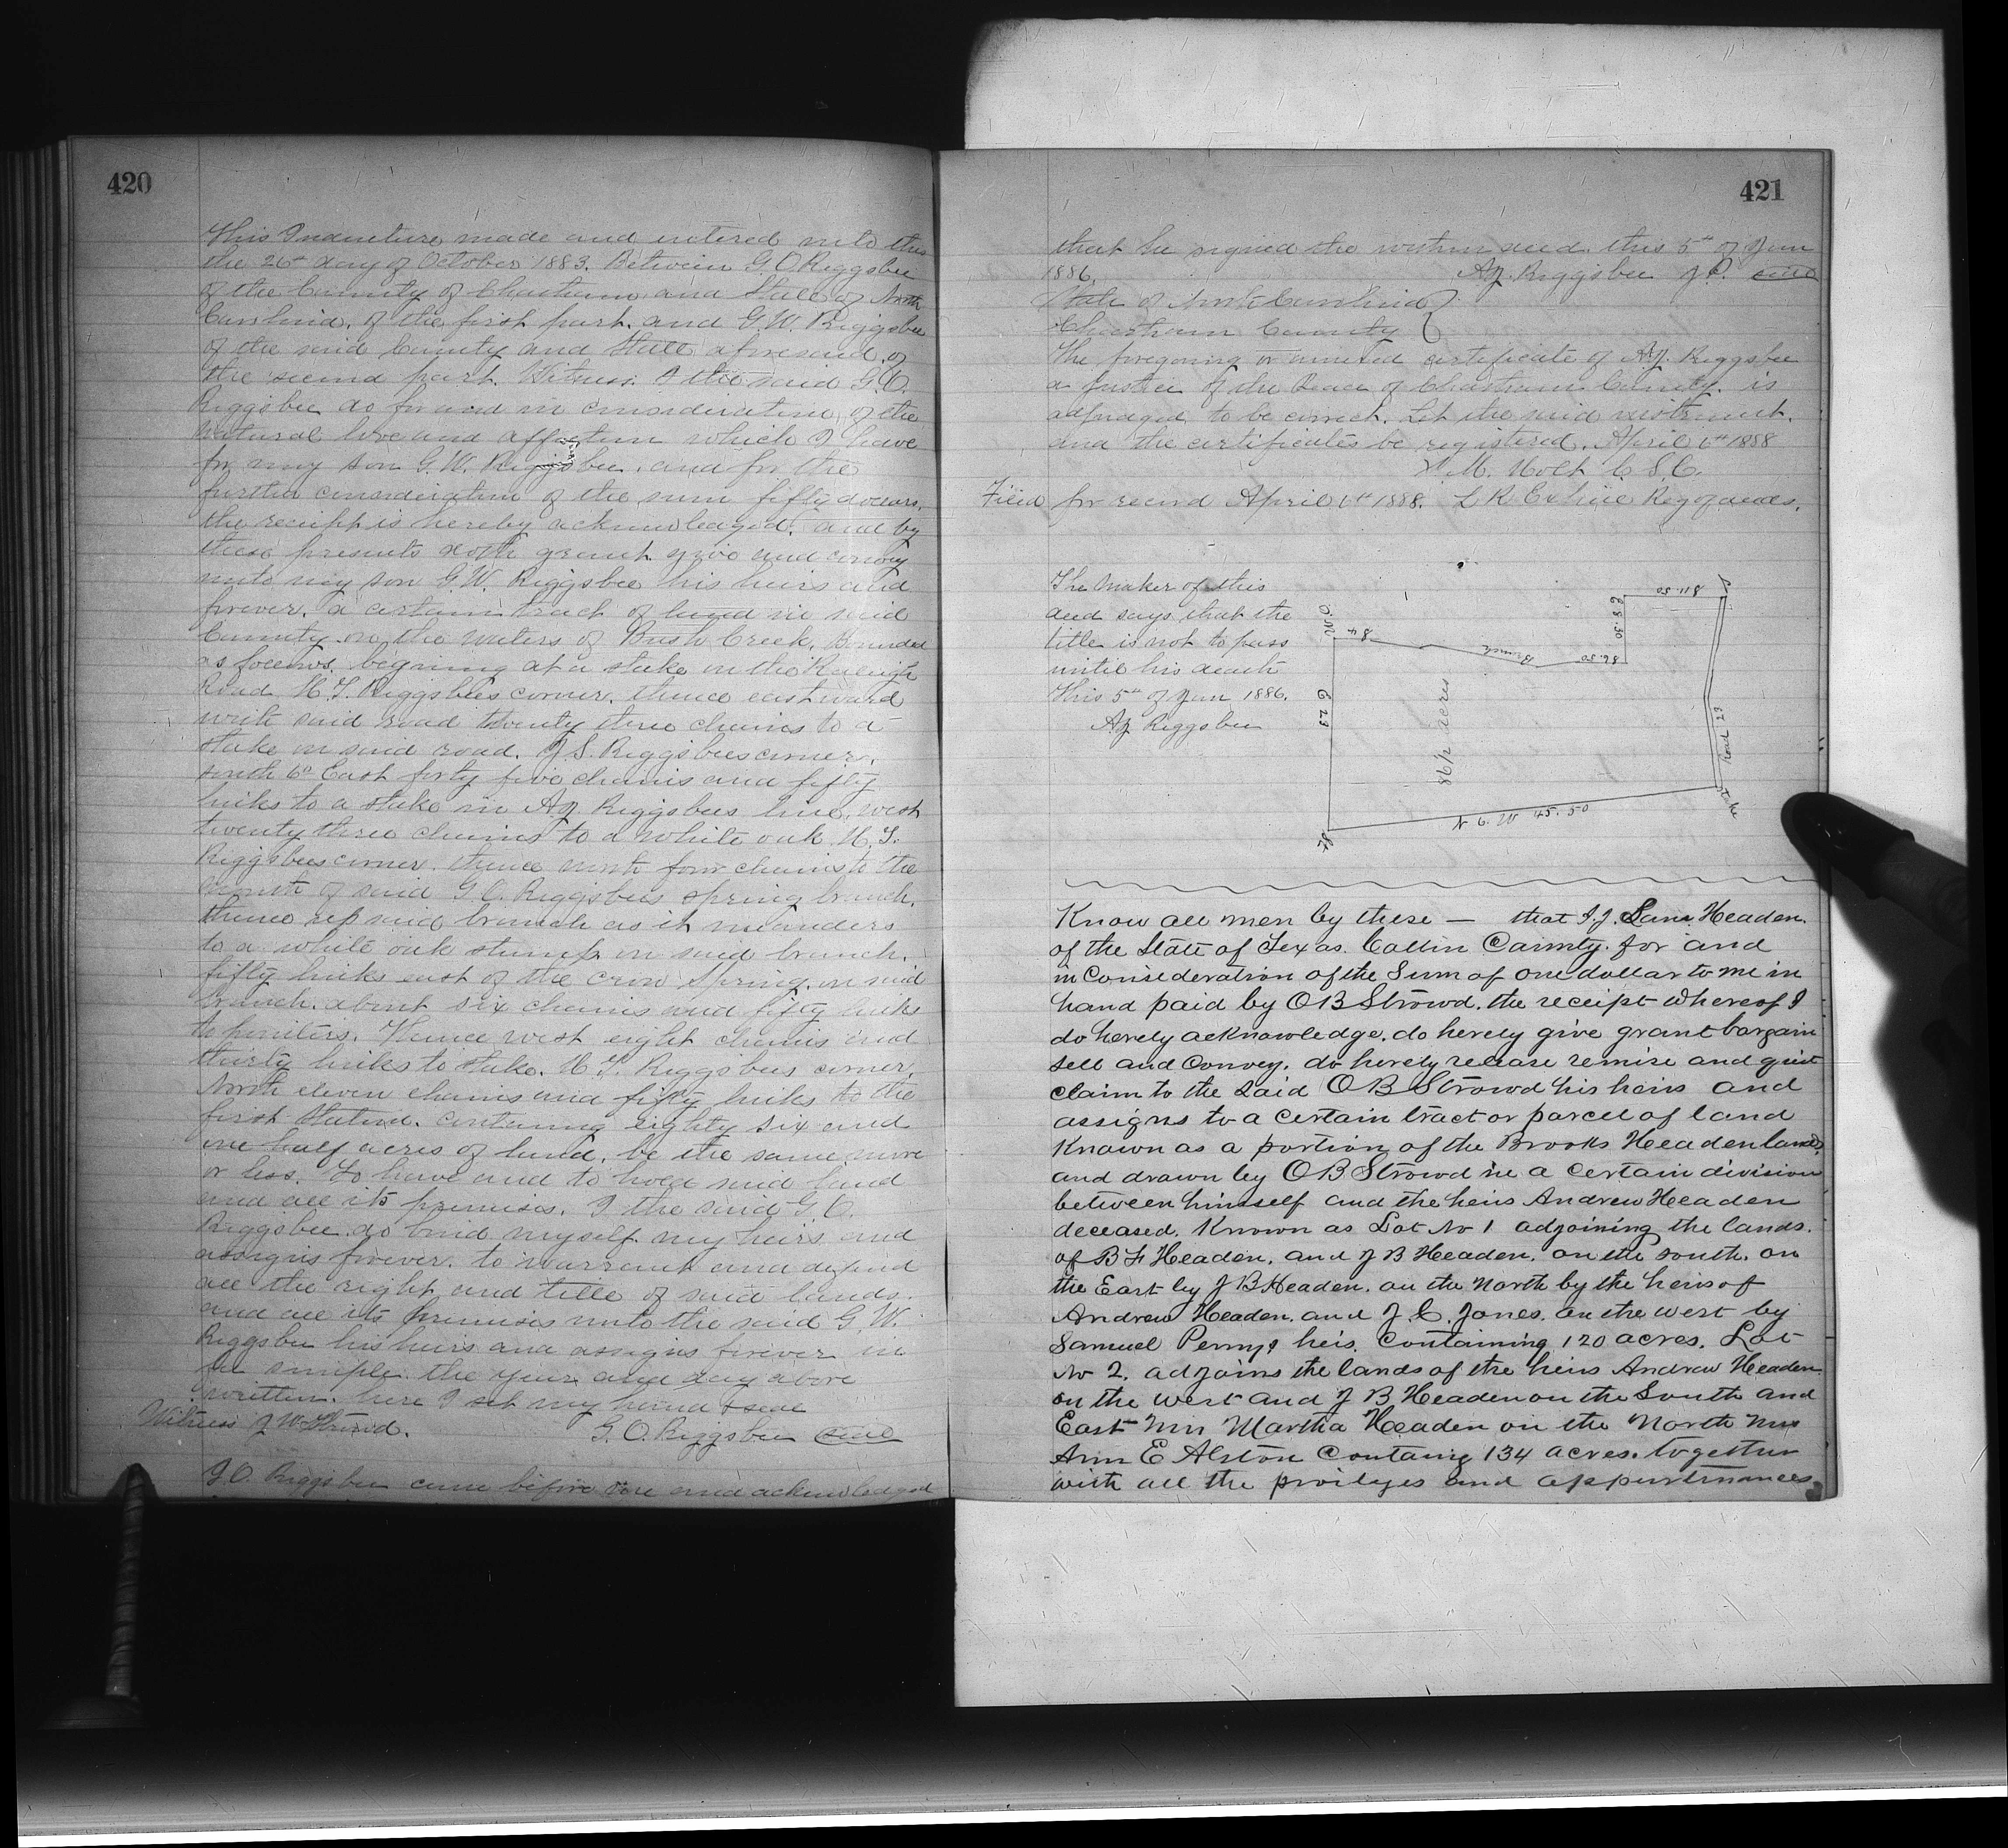 420
This Indenture made and entered into this
the 26th day of October 1883. Between G. O. Riggsbee
of the County of Chatham and State of North
Carolina, of the first part, and G. W. Riggsbee
of the said County and State aforesaid, of
the second part. Witness. I the said G. O.
Riggsbee do for and in consideration of the
natural love and affection which I have
for my son G. W. Riggsbee, and for the
further consideration of the sum fifty dollars,
the receipt is hereby acknowledged, and by
these presents doth grant give and convey
unto my son G. W. Riggsbee his heirs and
forever, a certain tract of land in said
County on the waters of Bush Creek, Bounded
as follows. begining at a stake in the Raleigh
Road M. T. Riggsbees corner, thence eastward
with said road twenty three chains to a
stake in said road, J. S. Riggsbees corner,
south 6° East forty five chains and fifty
links to a stake in A. J. Riggsbees line, west
twenty three chains to a white oak M. T.
Riggsbees corner, thence north four chains to the
mouth of said G. O. Riggsbees spring branch,
thence up said branch as it meanders
to a white oak stump in said branch,
fifty links east of the Spring, on said
branch, about six chains and fifty links
to pointers. Thence west eight chains and
thirty links to stake, M. T. Riggsbees corner,
North eleven chains and fifty links to the
first station, containing eighty six and
one half acres of land, be the same more
or less. To have and to hold said land
and all its premises. I the said G. O.
Riggsbee do bind myself, my heirs and
assigns forever, to warrant and defend
all the right and title of said lands,
and all its premises unto the said G. W.
Riggsbee his heirs and assigns forever in
fee simple the year and day above
written. here I set my hand & seal
Witness J W Strowd. G. O. Riggsbee seal
G O. Riggsbee came before me and acknowledged
421
that he signed the within deed. this 5th of Jan
1886. A. J. Riggsbee J. P. seal
State of North Carolina
Chatham County
The foregoing or annexed certificate of A. J. Riggsbee
a Justice of the Peace of Chatham County, is
adjudged to be correct. Let the said instrument,
and the certificates be registered. April 6th 1888
M. Holt C. S. C.
Filed for record April 6th 1888. L R Exline Reg of deeds.
The maker of this
deed says that the
title is not to pass
until his death
This 5th of Jan 1886.
A J Riggsbee
S 11.50
E 8.30
S 6.50
Branch
S 4
W. O
E 23
86½ acres
Road 23
N 6. W 45.50
St
Know all men by these — that I. J. Lane Headen.
of the State of Texas. Collin County. for and
in Consideration of the Sum of one dollar to me in
hand paid by O B Strowd. the receipt whereof I
do herely acknowledge. do herely give grant bargain
sell and Convey. do herely release remise and quit
claim to the said O B Strowd his heirs and
assigns to a certain tract or parcel of land
Known as a portion of the Brooks Headen lands,
and drawn by O B Strowd in a certain division
between himself and the heirs Andrew Headen
deceased. Known as Lot No 1 adjoining the lands.
of B F Headen. and J B Headen. on the south. on
the East by J B Headen. on the North by the heirs of
Andrew Headen. and J. C. Jones. on the west by
Samuel Perrys heis. Containing 120 acres. Lot
No 2. adjoins the lands of the heirs Andrew Headen
on the west and J B Headen on the South and
East Mrs Martha Headen on the North Mrs
Ann E Alston Containg 134 acres. together
with all the privileges and appurtinances